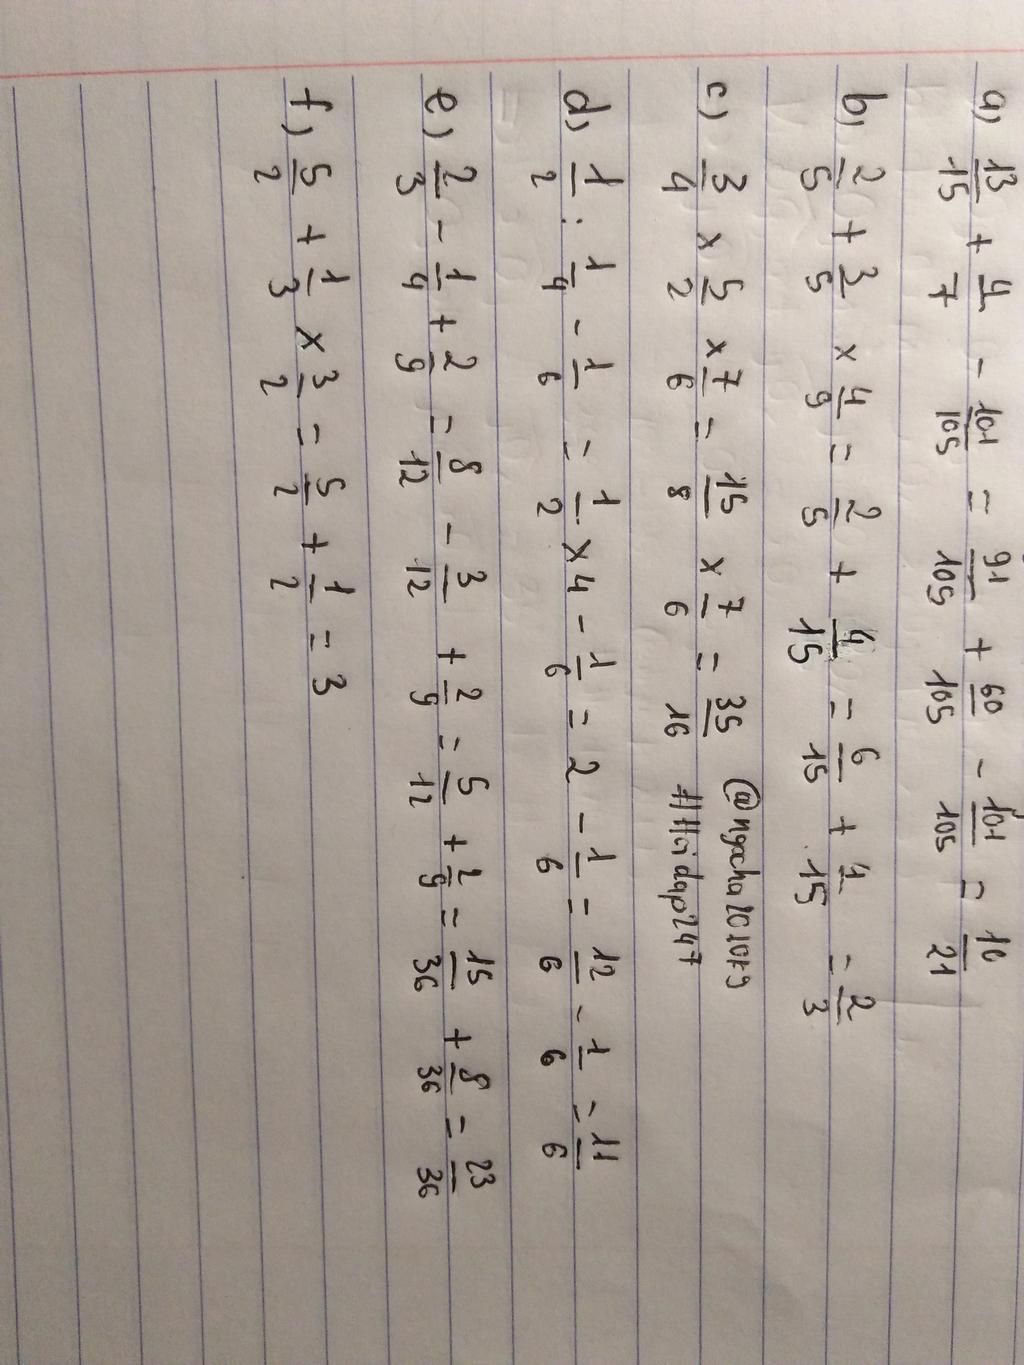 a) 13/15 + 4/7 - 101/105 = 91/105 + 60/105 - 101/105 = 10/21
b) 2/5 + 3/5 x 4/9 = 2/5 + 4/15 = 6/15 + 4/15 = 2/3
c) 3/4 x 5/2 x 7/6 = 15/8 x 7/6 = 35/16
@ngocha201079
#Hoidap247
d) 1/2 : 1/4 - 1/6 = 1/2 x 4 - 1/6 = 2 - 1/6 = 12/6 - 1/6 = 11/6
e) 2/3 - 1/4 + 2/9 = 8/12 - 3/12 + 2/9 = 5/12 + 2/9 = 15/36 + 8/36 = 23/36
f) 5/2 + 1/3 x 3/2 = 5/2 + 1/2 = 3